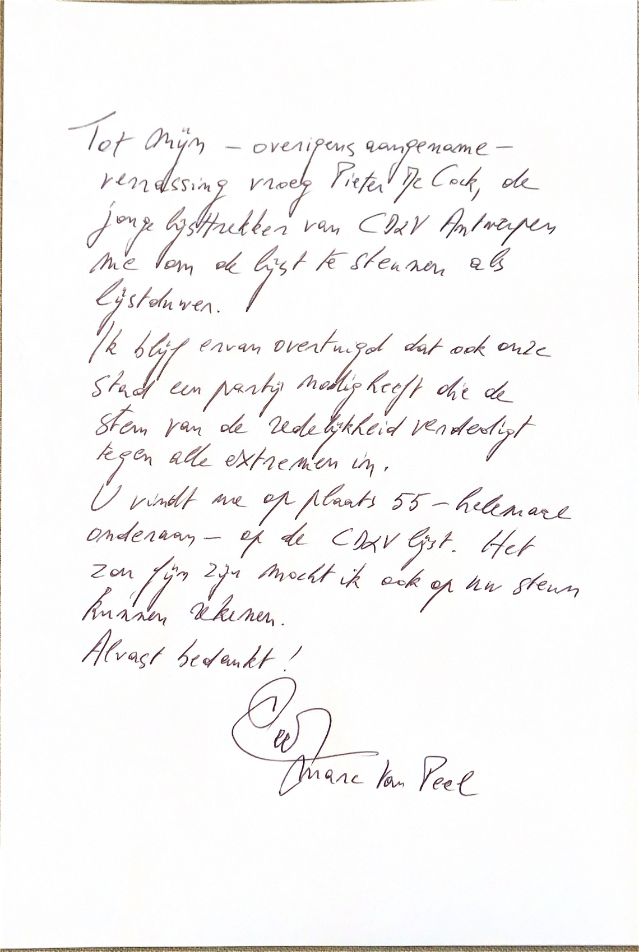 Tot mijn – overigens aangename –
verrassing vroeg Pieter De Cock, de
jonge lijsttrekker van CD&V Antwerpen
me om de lijst te steunen als
lijstduwer.
Ik blijf ervan overtuigd dat ook onze
stad een partij nodig heeft die de
stem van de redelijkheid verdedigt
tegen alle extremen in.
U vindt me op plaats 55 – helemaal
onderaan – op de CD&V lijst. Het
zou fijn zijn mocht ik ook op uw steun
kunnen rekenen.
Alvast bedankt!
Marc Van Peel